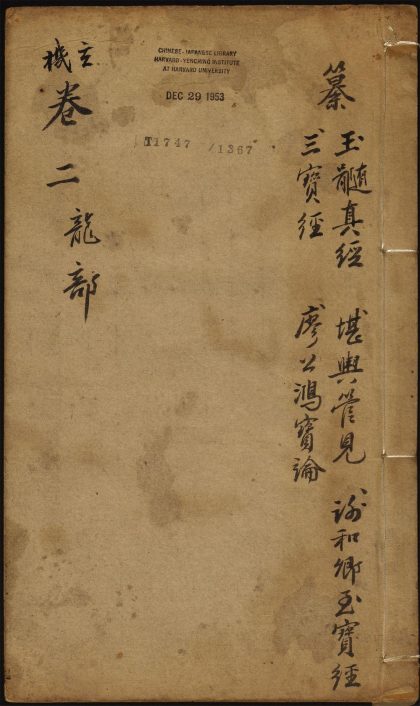 纂
玉髓真經　堪輿管見　謝和卿玉寶經
三寶經　廖公鴻寶論
玄機
卷二龍部
CHINESE-JAPANESE LIBRARY
HARVARD-YENCHING INSTITUTE
AT HARVARD UNIVERSITY
DEC 29 1953
T1747 /1367